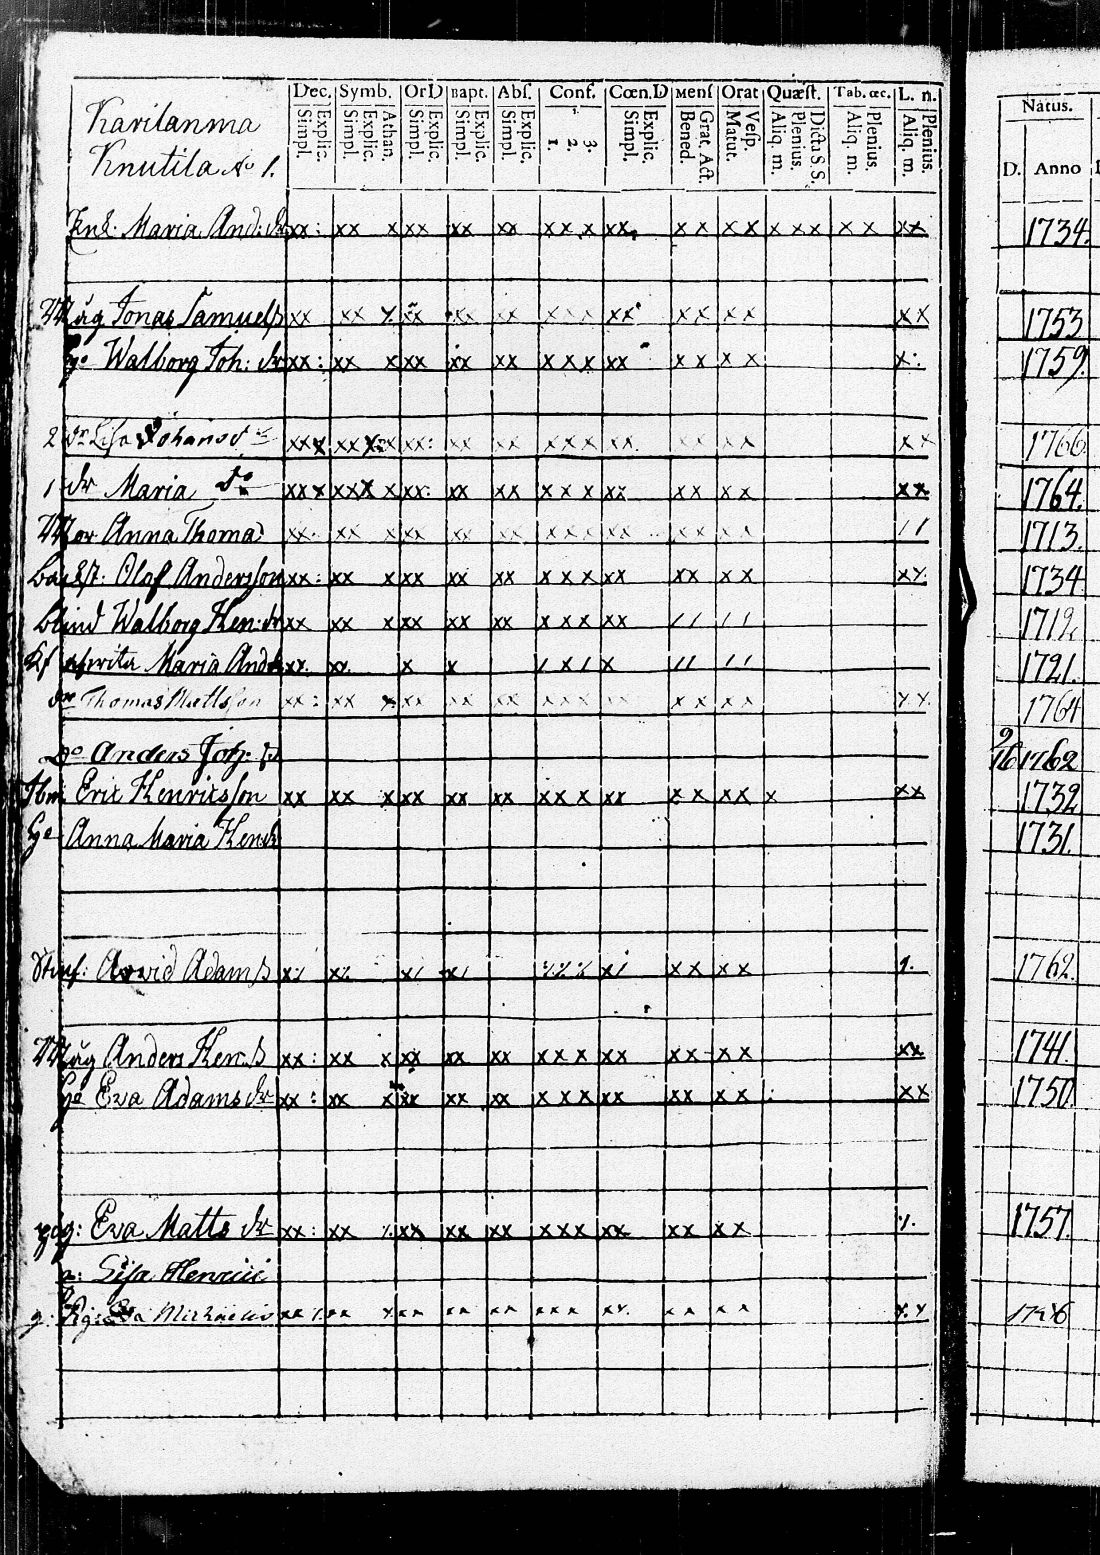 Karilanma
Knutila No 1.
Dec. Symb. Or D Bapt. Abſ. Conf. Cœn. D Menſ Orat Quæſt. Tab. œc. L. n.
Simpl. Explic. Simpl. Explic. Athan. Simpl. Explic. Simpl. Explic. Simpl. Explic. 1. 2. 3. Simpl. Explic. Bened. Grat. Act. Matut. Veſp. Aliq. m. Plenius. Dicta S. S. Aliq. m. Plenius. Aliq. m. Plenius.
Natus.
D. Anno
Enk. Maria And: dr xx: xx x xx xx xx x x x xx x x x x x x x x x xx 1734.
Måg Jonas Samuelſ xx xx x xx xx xx x x x xx x x x x x x 1753
Ho Walborg Joh: dr xx: xx x xx xx xx x x x xx x x x x x: 1759.
2 dr Liſa Johansd xxx xxx x xx: xx xx x x x xx xx x x x x 1766
1 dr Maria do xxx xxx x xx: xx xx x x x xx xx x x xx 1764.
Mor Anna Thomad xx xx x xx xx xx x x x xx xx x x / / 1713.
Olof Andersſon xx: xx x xx xx xx x x x xx xx x x xx 1734.
blind Walborg Hen: dr xx xx x xx xx xx x x x xx / / / / 1712.
Maria And xx xx x x / x / x // / / 1721.
Thomas Mattsſon xx: xx x xx xx xx x x x xx x x x x x x 1764
Do Anders Joh: ſ 9/16 1762
Eric Henricsſon xx xx x xx xx xx xx x xx x x xx x xx 1732
Anna Maria Hendr 1731.
Arvid Adamſ x/ x/ x/ x/ x/ x x x x 1. 1762.
Måg Anders Hen: ſ xx: xx x xx xx xx x x x xx xx x x xx 1741.
Ho Eva Adams dr xx: xx x xx xx xx x x x xx xx x x xx 1750.
pig: Eva Matts dr xx: xx xx xx xx xxx xx xx xx 1757.
Liſa Henrici
Pig: Michaelis xx xx xx xx xx xxx xx x x x x